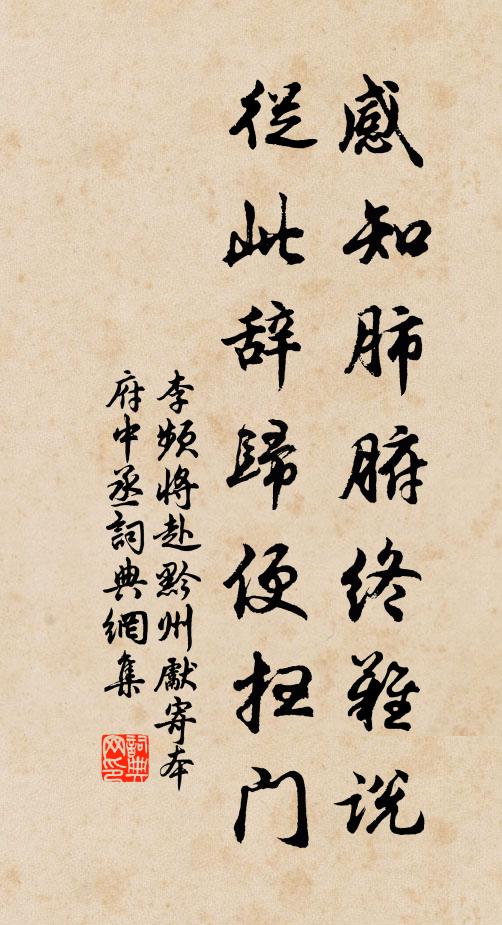 感知肺腑终難説
從此辞歸便扫门
李频將赴黔州獻寄本
府中丞詞典網集
詞典
网印